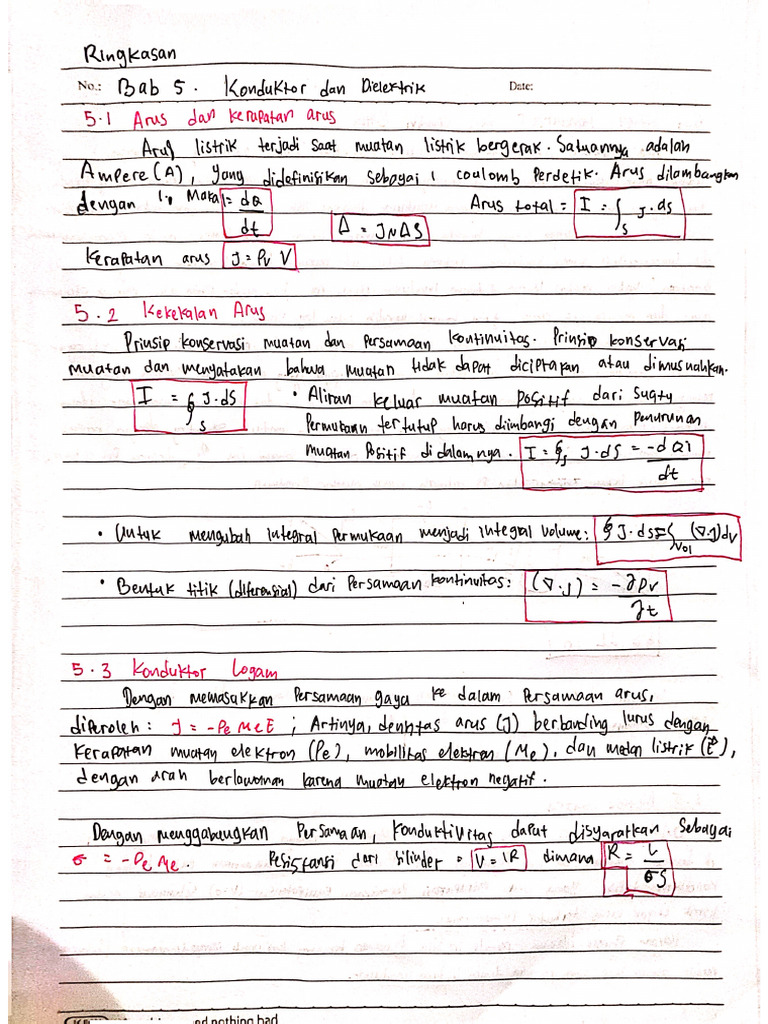 Ringkasan
No.: Bab 5. Konduktor dan Dielektrik Date:
5.1 Arus dan kerapatan arus
Arus listrik terjadi saat muatan listrik bergerak. Satuannya adalah
Ampere (A), yang didefinisikan sebagai 1 coulomb perdetik. Arus dilambangkan
dengan I. Maka I = dQ/dt Arus total = I = ∫s J·ds
Δ = JN ΔS
Kerapatan arus J = Pv V
5.2 Kekekalan Arus
Prinsip konservasi muatan dan Persamaan kontinuitas. Prinsip konservasi
muatan dan menyatakan bahwa muatan tidak dapat diciptakan atau dimusnahkan.
I = ∮s J·dS • Aliran keluar muatan positif dari suatu
Permukaan tertutup harus diimbangi dengan penurunan
muatan Positif didalamnya. I = ∮s J·dS = -dQi/dt
• Untuk mengubah integral Permukaan menjadi integral volume: ∮ J·ds = ∫vol (∇·J)dv
• Bentuk titik (diferensial) dari Persamaan kontinuitas: (∇·J) = -∂Pv/∂t
5.3 Konduktor Logam
Dengan memasukkan Persamaan gaya ke dalam Persamaan arus,
diperoleh: J = -Pe Me E ; Artinya, densitas arus (J) berbanding lurus dengan
kerapatan muatan elektron (Pe), mobilitas elektron (Me), dan medan listrik (E⃗),
dengan arah berlawanan karena muatan elektron negatif.
Dengan menggabungkan Persamaan, konduktivitas dapat disyaratkan sebagai
σ = -Pe Me. Resistansi dari silinder = V = IR dimana R = L/σS
nd nothing bad